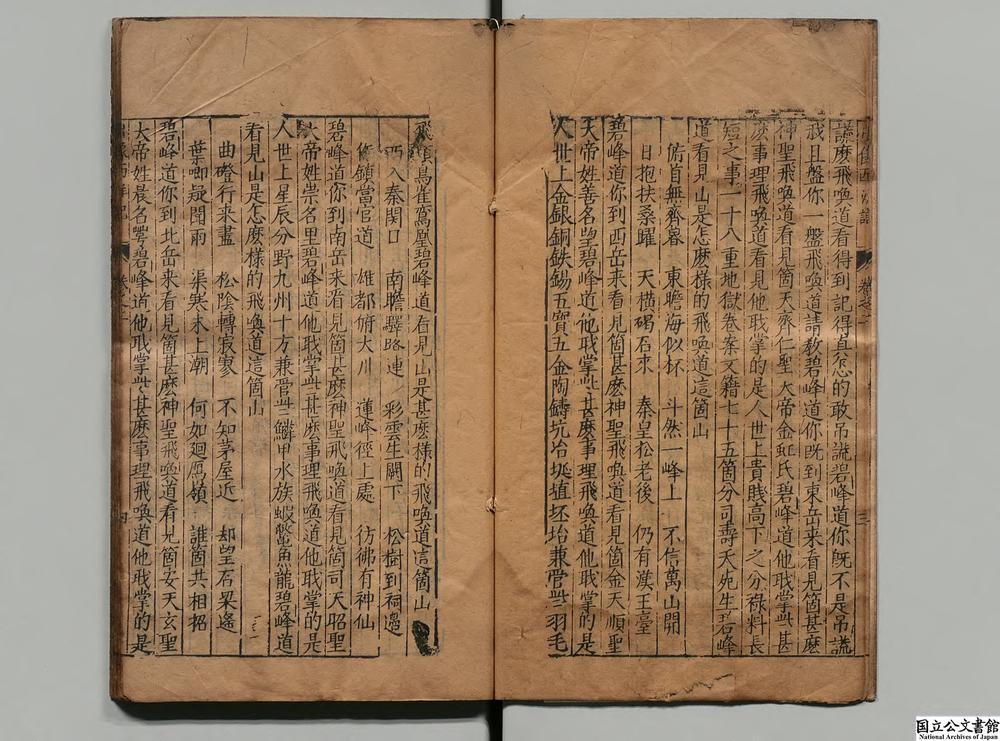 謊麽飛喚道看得到記得直怎的敢吊謊碧峰道你既不是吊謊
我且盤你一盤飛喚道請教碧峰道你既到東岳來看見箇甚麽
神聖飛喚道看見箇天齊仁聖大帝金虹氏碧峰道他職掌些甚
麽事理飛喚道看見他職掌的是人世上貴賤高下之分祿料長
短之事一十八重地獄卷案文籍七十五箇分司壽夭死生碧峰
道看見山是怎麽樣的飛喚道這箇山
俯首無齊魯 東瞻海似杯 斗然一峰上 不信萬山開
日抱扶桑躍 天橫碣石來 秦皇松老後 仍有漢王臺
碧峰道你到西岳來看見箇甚麽神聖飛喚道看見箇金天順聖
大帝姓善名望碧峰道他職掌些甚麽事理飛喚道他職掌的是
人世上金銀銅鉄錫五寶五金陶鑄坑冶埏埴坯坮兼管些羽毛
飛禽鳥雀鸞凰碧峰道看見山是甚麽樣的飛喚道這箇山
西入秦関口 南瞻驛路連 彩雲生闕下 松樹到祠邊
作鎮當官道 雄都俯大川 蓮峰徑上處 彷彿有神仙
碧峰道你到南岳來看見箇甚麽神聖飛喚道看見箇司天昭聖
大帝姓崇名里碧峰道他職掌些甚麽事理飛喚道他職掌的是
人世上星辰分野九州十方兼管些鱗甲水族蝦鱉魚龍碧峰道
看見山是怎麽樣的飛喚道這箇山
曲磴行來盡 松陰轉寂寥 不知茅屋近 却望石梁遙
葉唧疑聞雨 渠寒未上潮 何如廻鴈嶺 誰箇共相招
碧峰道你到北岳來看見箇甚麽神聖飛喚道看見箇安天玄聖
大帝姓晨名萼碧峰道他職掌些甚麽事理飛喚道他職掌的是
卷之一
三
四
国立公文書館
National Archives of Japan